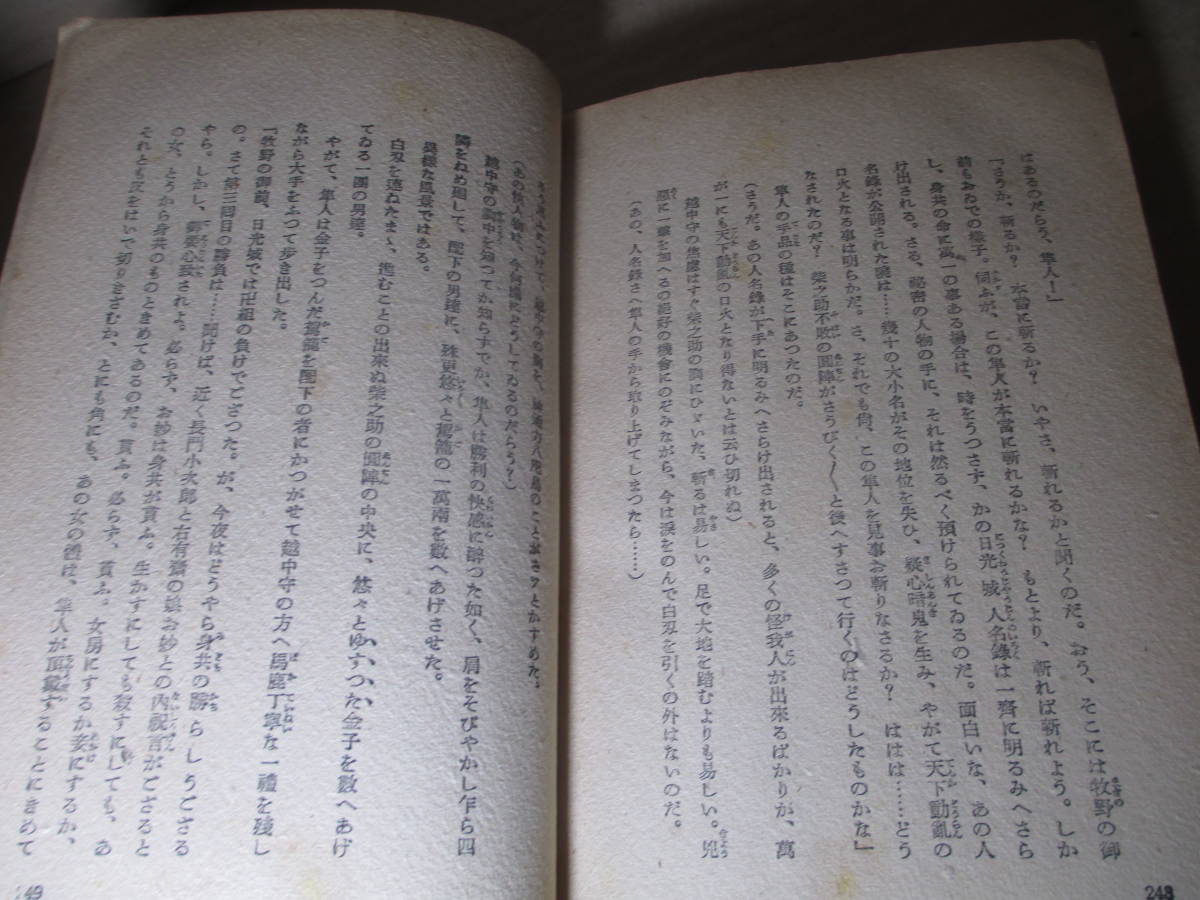 はあるのだらう、隼人！」
「さうか、斬るか？　本當に斬るか？　いやさ、斬れるかと聞くのだ。おう、そこには牧野の御
前もおゐでの樣子。伺ふが、この隼人が本當に斬れるかな？　もとより、斬れば斬れよう。しか
し、身共の命に萬一の事ある場合は、時をうつさず、かの日光城人名錄は一齊に明るみへさら
け出される。さる、秘密の人物の手に、それは然るべく預けられてゐるのだ。面白いな、あの人
名錄が公開された曉は……幾十の大小名がその地位を失ひ、疑心暗鬼を生み、やがて天下動亂の
口火となる事は明らかだ。さ、それでも尙、この隼人を見事お斬りなさるか？　ははは……どう
なされたのだ？　柴之助不敗の圓陣がさうびく〳〵と後へすさつて行くのはどうしたものかな」
隼人の手品の種はそこにあつたのだ。
（さうだ。あの人名錄が下手に明るみへさらけ出されると、多くの怪我人が出來るばかりか、萬
が一にも天下動亂の口火となり得ないとは云ひ切れぬ）
越中守の焦慮はすぐ柴之助の胸にひゞいた。斬るは易しい。足で大地を踏むよりも易しい。兇
惡に一擊を加へるの絕好の機會にのぞみながら、今は淚をのんで白刃を引くの外はないのだ。
（あの、人名錄さへ隼人の手から取り上げてしまつたら……）
248
のことがさッとかすめた。
（あの怪人物は、今何處にどうしてゐるのだらう？）
越中守の胸中を知つてか知らずでか、隼人は勝利の快感に醉つた如く、肩をそびやかし乍ら四
隣をねめ廻して、配下の男達に、殊更悠々と駕籠の一萬兩を數へあげさせた。
異樣な風景ではある。
白刃を連ねたまゝ、進むことの出來ぬ柴之助の圓陣の中央に、悠々とゆすつた金子を數へあげ
てゐる一團の男達。
やがて、隼人は金子をつんだ駕籠を配下の者にかつがせて越中守の方へ馬鹿丁寧な一禮を殘し
ながら大手をふつて步き出した。
「牧野の御前、日光城では卍組の負けでござつた。が、今夜はどうやら身共の勝らしうござる
の。さて第三回目の勝負は……聞けば、近く長門小太郎と右有齋の娘お妙との內祝言がござると
やら。しかし、御要心致されよ。必らず、お妙は身共が貰ふ。生かすにしても殺すにしても、あ
の女、とうから身共のものときめてあるのだ。貰ふ。必らず、貰ふ。女房にするか妾にするか、
それとも皮をはいで切りきざむか、とにも角にも、あの女の體は、隼人が頂戴するとにきめて
249